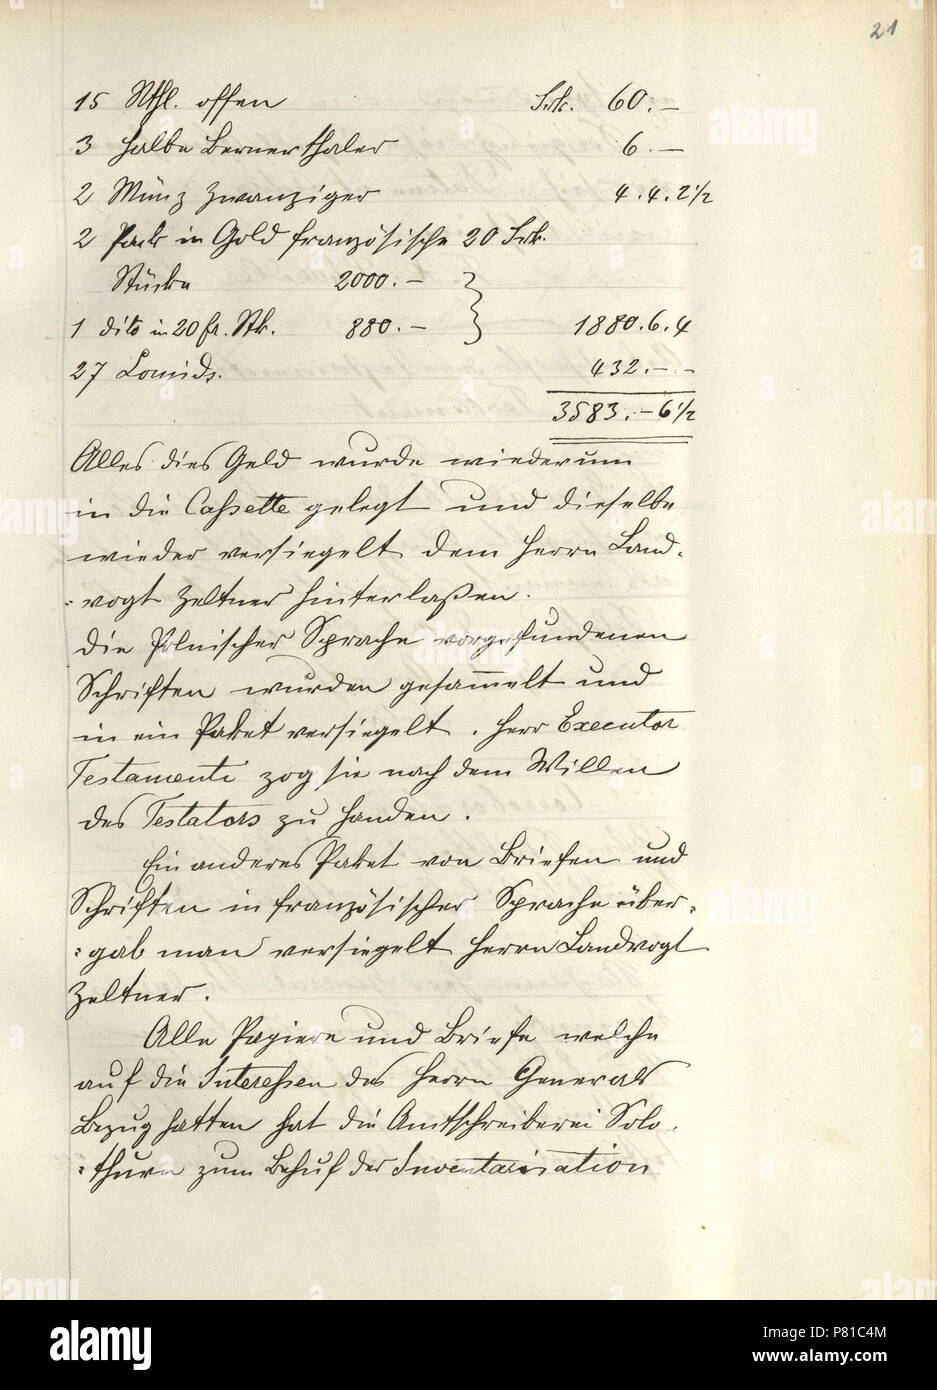 21
15 Nthl. offen Frk. 60.–
3 halbe Bernerthaler 6.–
2 Münz Zwanziger 4.4.2½
2 Pack in Gold französische 20 Frk.
Stücke 2000.–
1 dito in 20 fr. Stk. 880.– 1880.6.4
27 Louisds. 432.–.–
3583.–6½
Alles dies Geld wurde wiederum
in die Caßette gelegt und dieselbe
wieder versiegelt dem Herrn Land-
:vogt Zeltner hinterlaßen.
Die Polnischer Sprache vorgefundenen
Schriften wurden gesam̅elt und
in ein Paket versiegelt. Herr Executor
Testamenti zog sie nach dem Willen
des Testators zu Handen.
Ein anderes Paket von Briefen und
Schriften in französischer Sprache über-
:gab man versiegelt Herrn Landvogt
Zeltner.
Alle Papiere und Briefe welche
auf die Interessen des Herrn Generals
Bezug hatten hat die Amtschreiberei Solo-
:thurn zum Behuf der Inventarisation
alamy
P81C4M